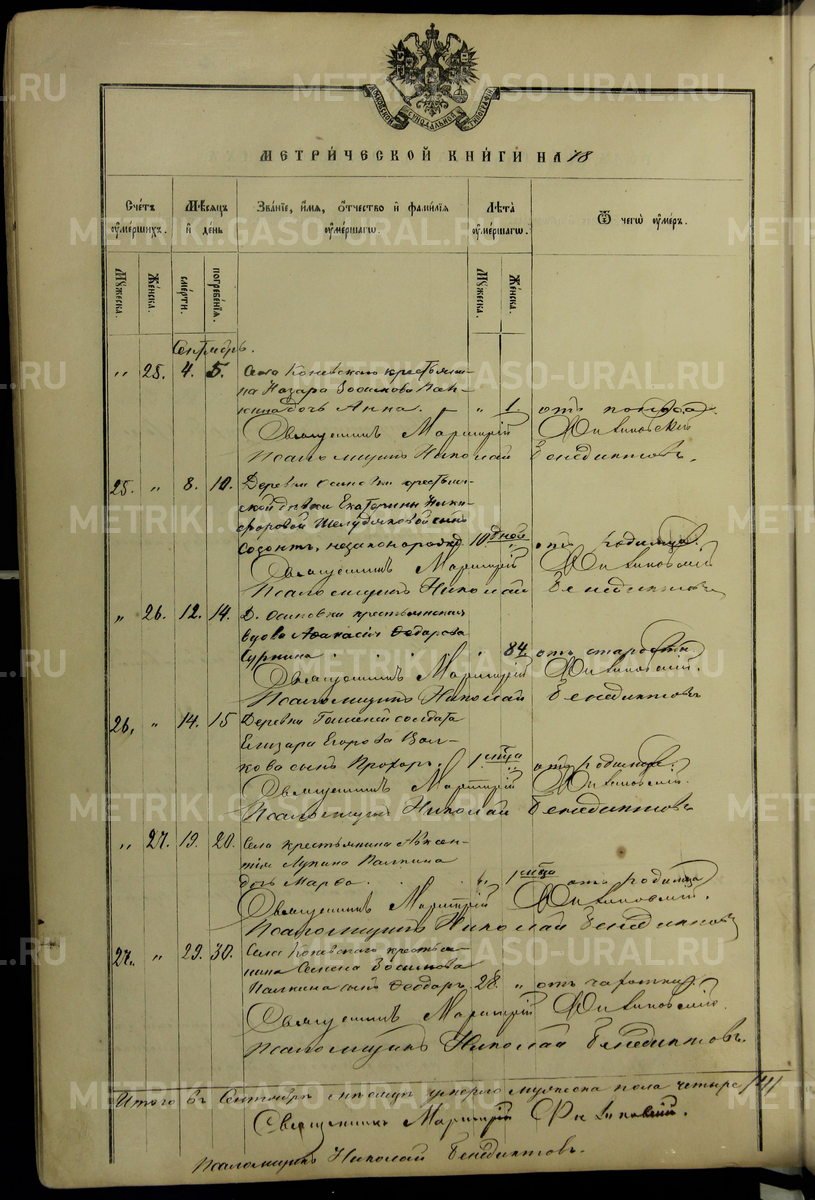 МОСКОВСКОЙ СѴНОДАЛЬНОЙ ТИПОГРАФІИ
МЕТРИЧЕСКОЙ КНИГИ НА 78
Счетъ умершихъ.
Мѣсяцъ и день
Званіе, имя, отчество и фамилія умершагѡ.
Лѣта умершагѡ.
Ѿ чегѡ умеръ.
Мужеска.
Женска.
смерти.
погребенія.
Мужеска.
Женска.
Сентябрь.
„ 25. 4. 5. Села Коневскаго крестьяни-
на Назара Зосимова Пал-
кина дочь Анна. „ 1 отъ поноса.
Священникъ Мартирій
Псаломщикъ Николай Бенедиктовъ.
25. „ 8. 10. Деревни Осиновки крестьян-
ской дѣвки Екатерины Ники-
форовой Шелудяковой сынъ
Созонтъ, незаконорожд. 10 дней „ отъ родимца.
Священникъ Мартирій
Псаломщикъ Николай Бенедиктовъ
„ 26. 12. 14. Д. Осиновки крестьянская
вдова Афанасія Федорова
84. отъ старости
Священникъ Мартирій
Псаломщикъ Николай Бенедиктовъ
26. „ 14. 15 Деревни солдата
Елизара Егорова Вол-
кова сынъ Прохоръ. 1 мѣсца „ отъ родимца.
Священникъ Мартирій
Псаломщикъ Николай Бенедиктовъ
„ 27. 19. 20. Села крестьянина Авксен-
тія Лупина Палкина
дочь Марѳа. „ 1 мѣсца отъ родимца
Священникъ Мартирій
Псаломщикъ Николай Бенедиктовъ
27. „ 29. 30. Села Коневскаго крестья-
нина Семена Зосимова
Палкина сынъ Ѳеодоръ. 28. „ отъ чахотки.
Священникъ Мартирій
Псаломщикъ Николай Бенедиктовъ.
Итого въ Сентябрѣ мѣсяцѣ умерло мужеска пола четыре /4/
Священникъ Мартирій
Псаломщикъ Николай Бенедиктовъ.
METRIKI.GASO-URAL.RU